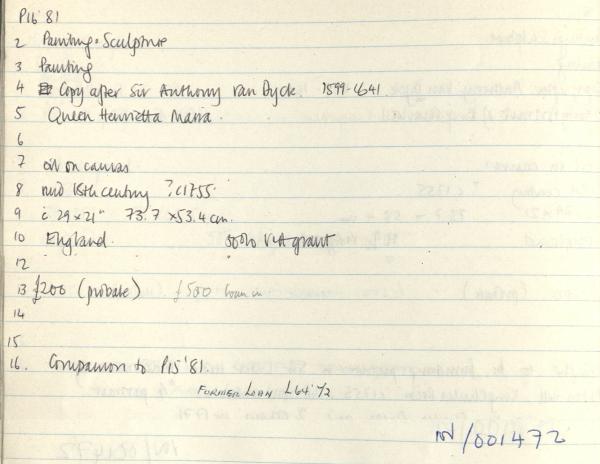 P16'81
2 Painting + Sculpture
3 Painting
4 Copy after Sir Anthony Van Dyck. 1599-1641.
5 Queen Henrietta Maria.
6
7 oil on canvas
8 mid 18th century ?c1755.
9 c 29 x 21" 73.7 x 53.4 cm.
10 England. 50% V+A grant
12
13 £200 (probate) £500 loan in
14
15
16. Companion to P15'81.
FORMER LOAN L64'72
IN/001472